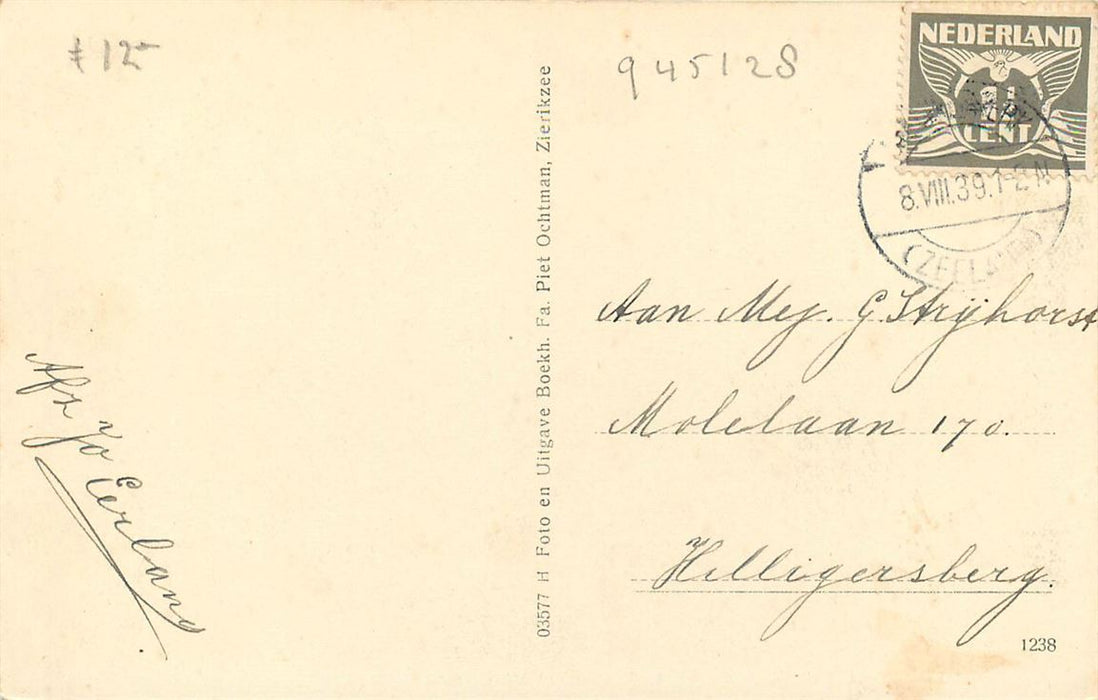 ƒ 12-
945128
NEDERLAND
CENT
8.VIII.39.1-2 N
(ZEELAND)
Aan Mej. G. Strijhorst
Molelaan 170.
Hilligersberg.
Afz Jo Eerland
03577 H Foto en Uitgave Boekh. Fa. Piet Ochtman, Zierikzee
1238